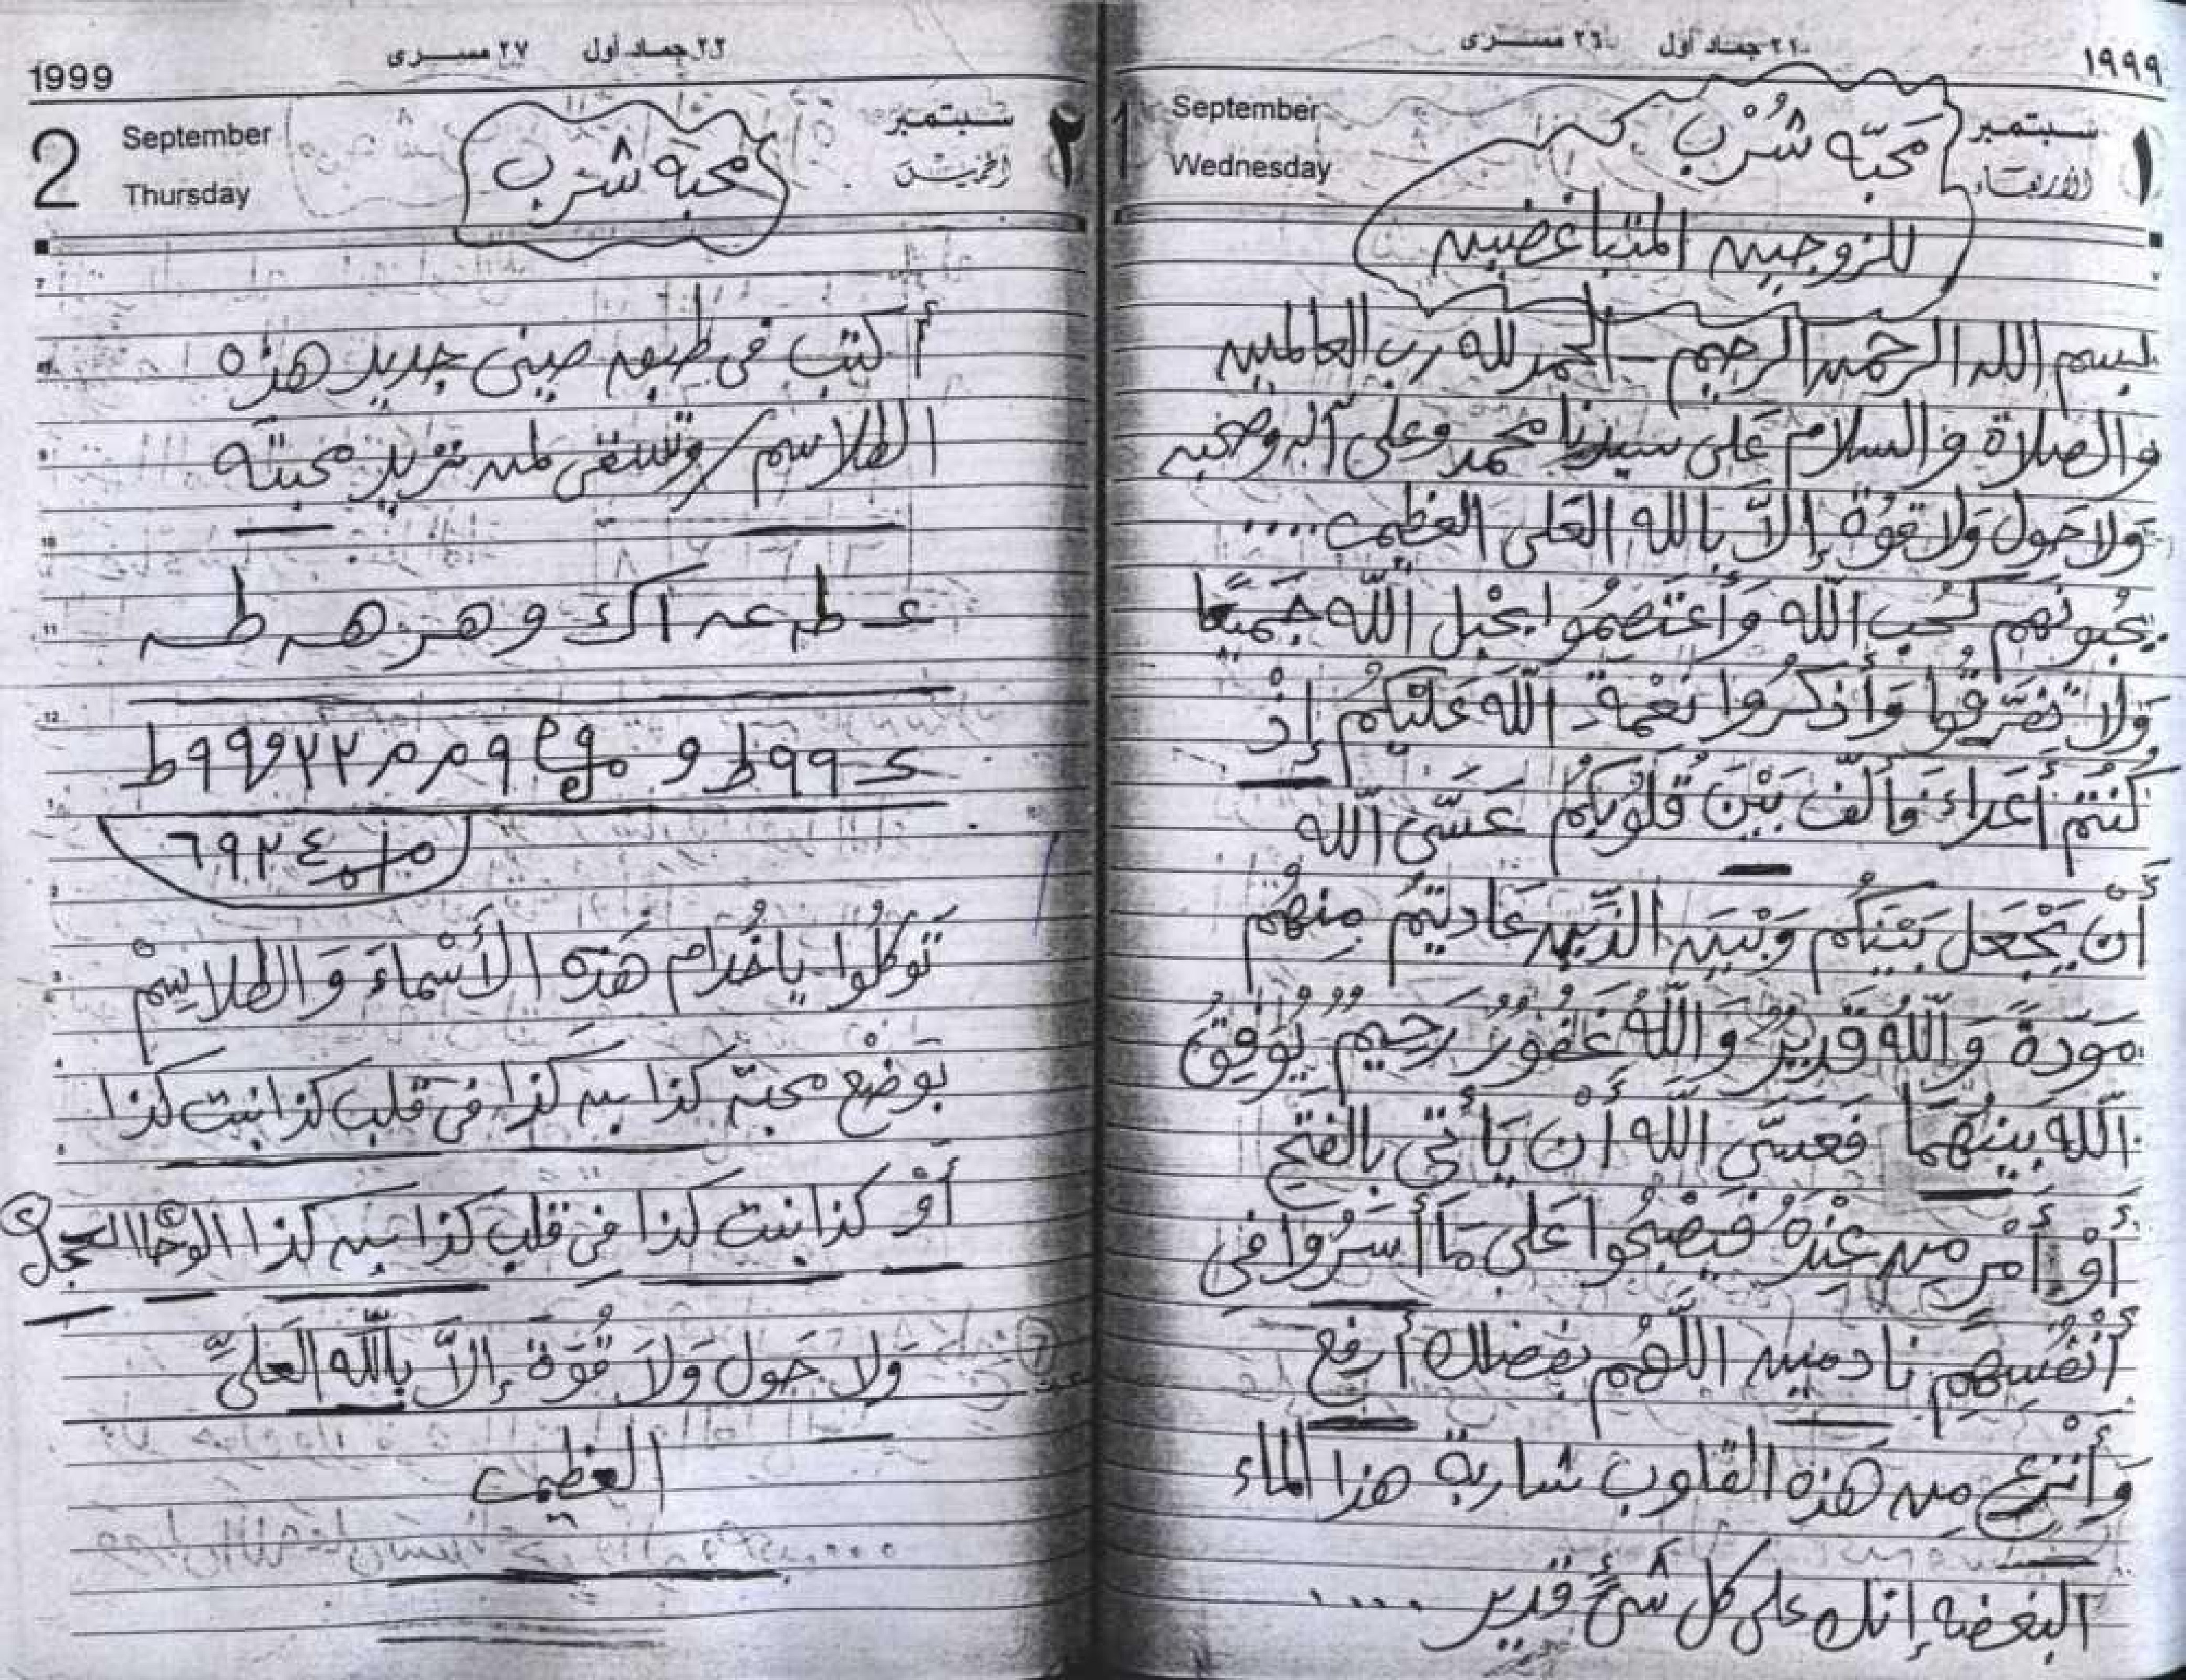 ١٩٩٩
٢١ جماد أول ٢٦ مسرى
سبتمبر
الأربعاء
١
1 September
Wednesday
محبّه شُرْب
للزوجين المتباغضين
بسم الله الرحمن الرحيم - الحمد لله رب العالمين
والصلاة والسلام على سيدنا محمد وعلى آله وصحبه
ولا حَول ولا قوُة إلاّ بالله العَلى العظيم ....
يحُبونَهم كحُب اللّه وَأعْتَصِمُوا بحْبل اللّه جَميعًا
وَلا تفَرَّقُوا وَأذكرُوا نعْمة اللّه عَلَيْكُم إذْ
كُنتُم أعَداءَ فَألّفَ بَيْنَ قُلُوبكُمُ عَسَىّ اللّه
أنْ يَجْعَل بَيْنَكُم وَبَينَ الذّين عَاديتُمُ مِنهُم
مَودَةً وَاللّهُ قَدَيرُ وَاللّهُ غَفُورُ رَحيِمُ يُوَفِقُ
اللّهَ بينهُمَا فَعسَىّ اللّه أنْ يَأتي بالفَتحِ
أوْ أمْرِ مِن عِنْدهُ فيَصْبحُوا عَلىَ مَا أسَرُوا في
أنفُسهِم نادمين اللّهُم بفضلك أرفع
وَأنْزع مِن هَذه القلوب شاربة هذا الماء
البغضه إنك على كل شئ قدير ....
1999
٢٢ جماد أول ٢٧ مسرى
2 September
Thursday
سبتمبر
الخميس
٢
محبه شرب
أكتب فى طبق صينى جديد هذه
الطلاسم / وتسقى لمن تريد محبته
توَكلُوا ياخُدام هَذه الأسْماءَ وَالطلاسِمْ
بوَضْع محبة كذا بن كَذا فى قلب كذا بنت كذا
أوْ كذا بنت كذا فى قلب كذا بن كذا الوحا٢ العجل٢
وَلا حَول وَلاَ قُوَة إلاّ باللّه العَلىّ
العظيم